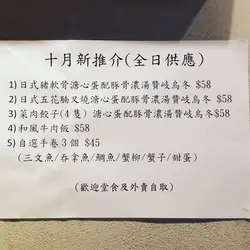 十月新推介(全日供應)
1)日式豬軟骨溏心蛋配豚骨濃湯贊岐烏冬 $58
2)日式五花腩叉燒溏心蛋配豚骨濃湯贊岐烏冬 $58
3)菜肉餃子(4隻) 溏心蛋配豚骨濃湯贊岐烏冬 $58
4)和風牛肉飯 $58
5)自選手卷3個 $45
(三文魚/吞拿魚/鯛魚/蟹柳/蟹子/甜蛋)
(歡迎堂食及外賣自取)